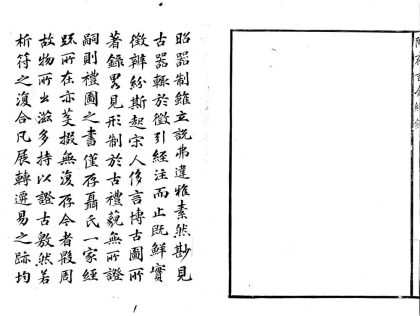 昭器制雖立說弗違雅素然尟見
古器輒於徵引經注而止旣鮮實
徵辨紛斯起宋人侈言博古圖所
著錄畧見形制於古禮藐無所證
嗣則禮圖之書僅存聶氏一家經
疏所在亦芟掇無復存今者殷周
故物所出滋多持以證古敷然若
析符之復合凡展轉遷易之跡均